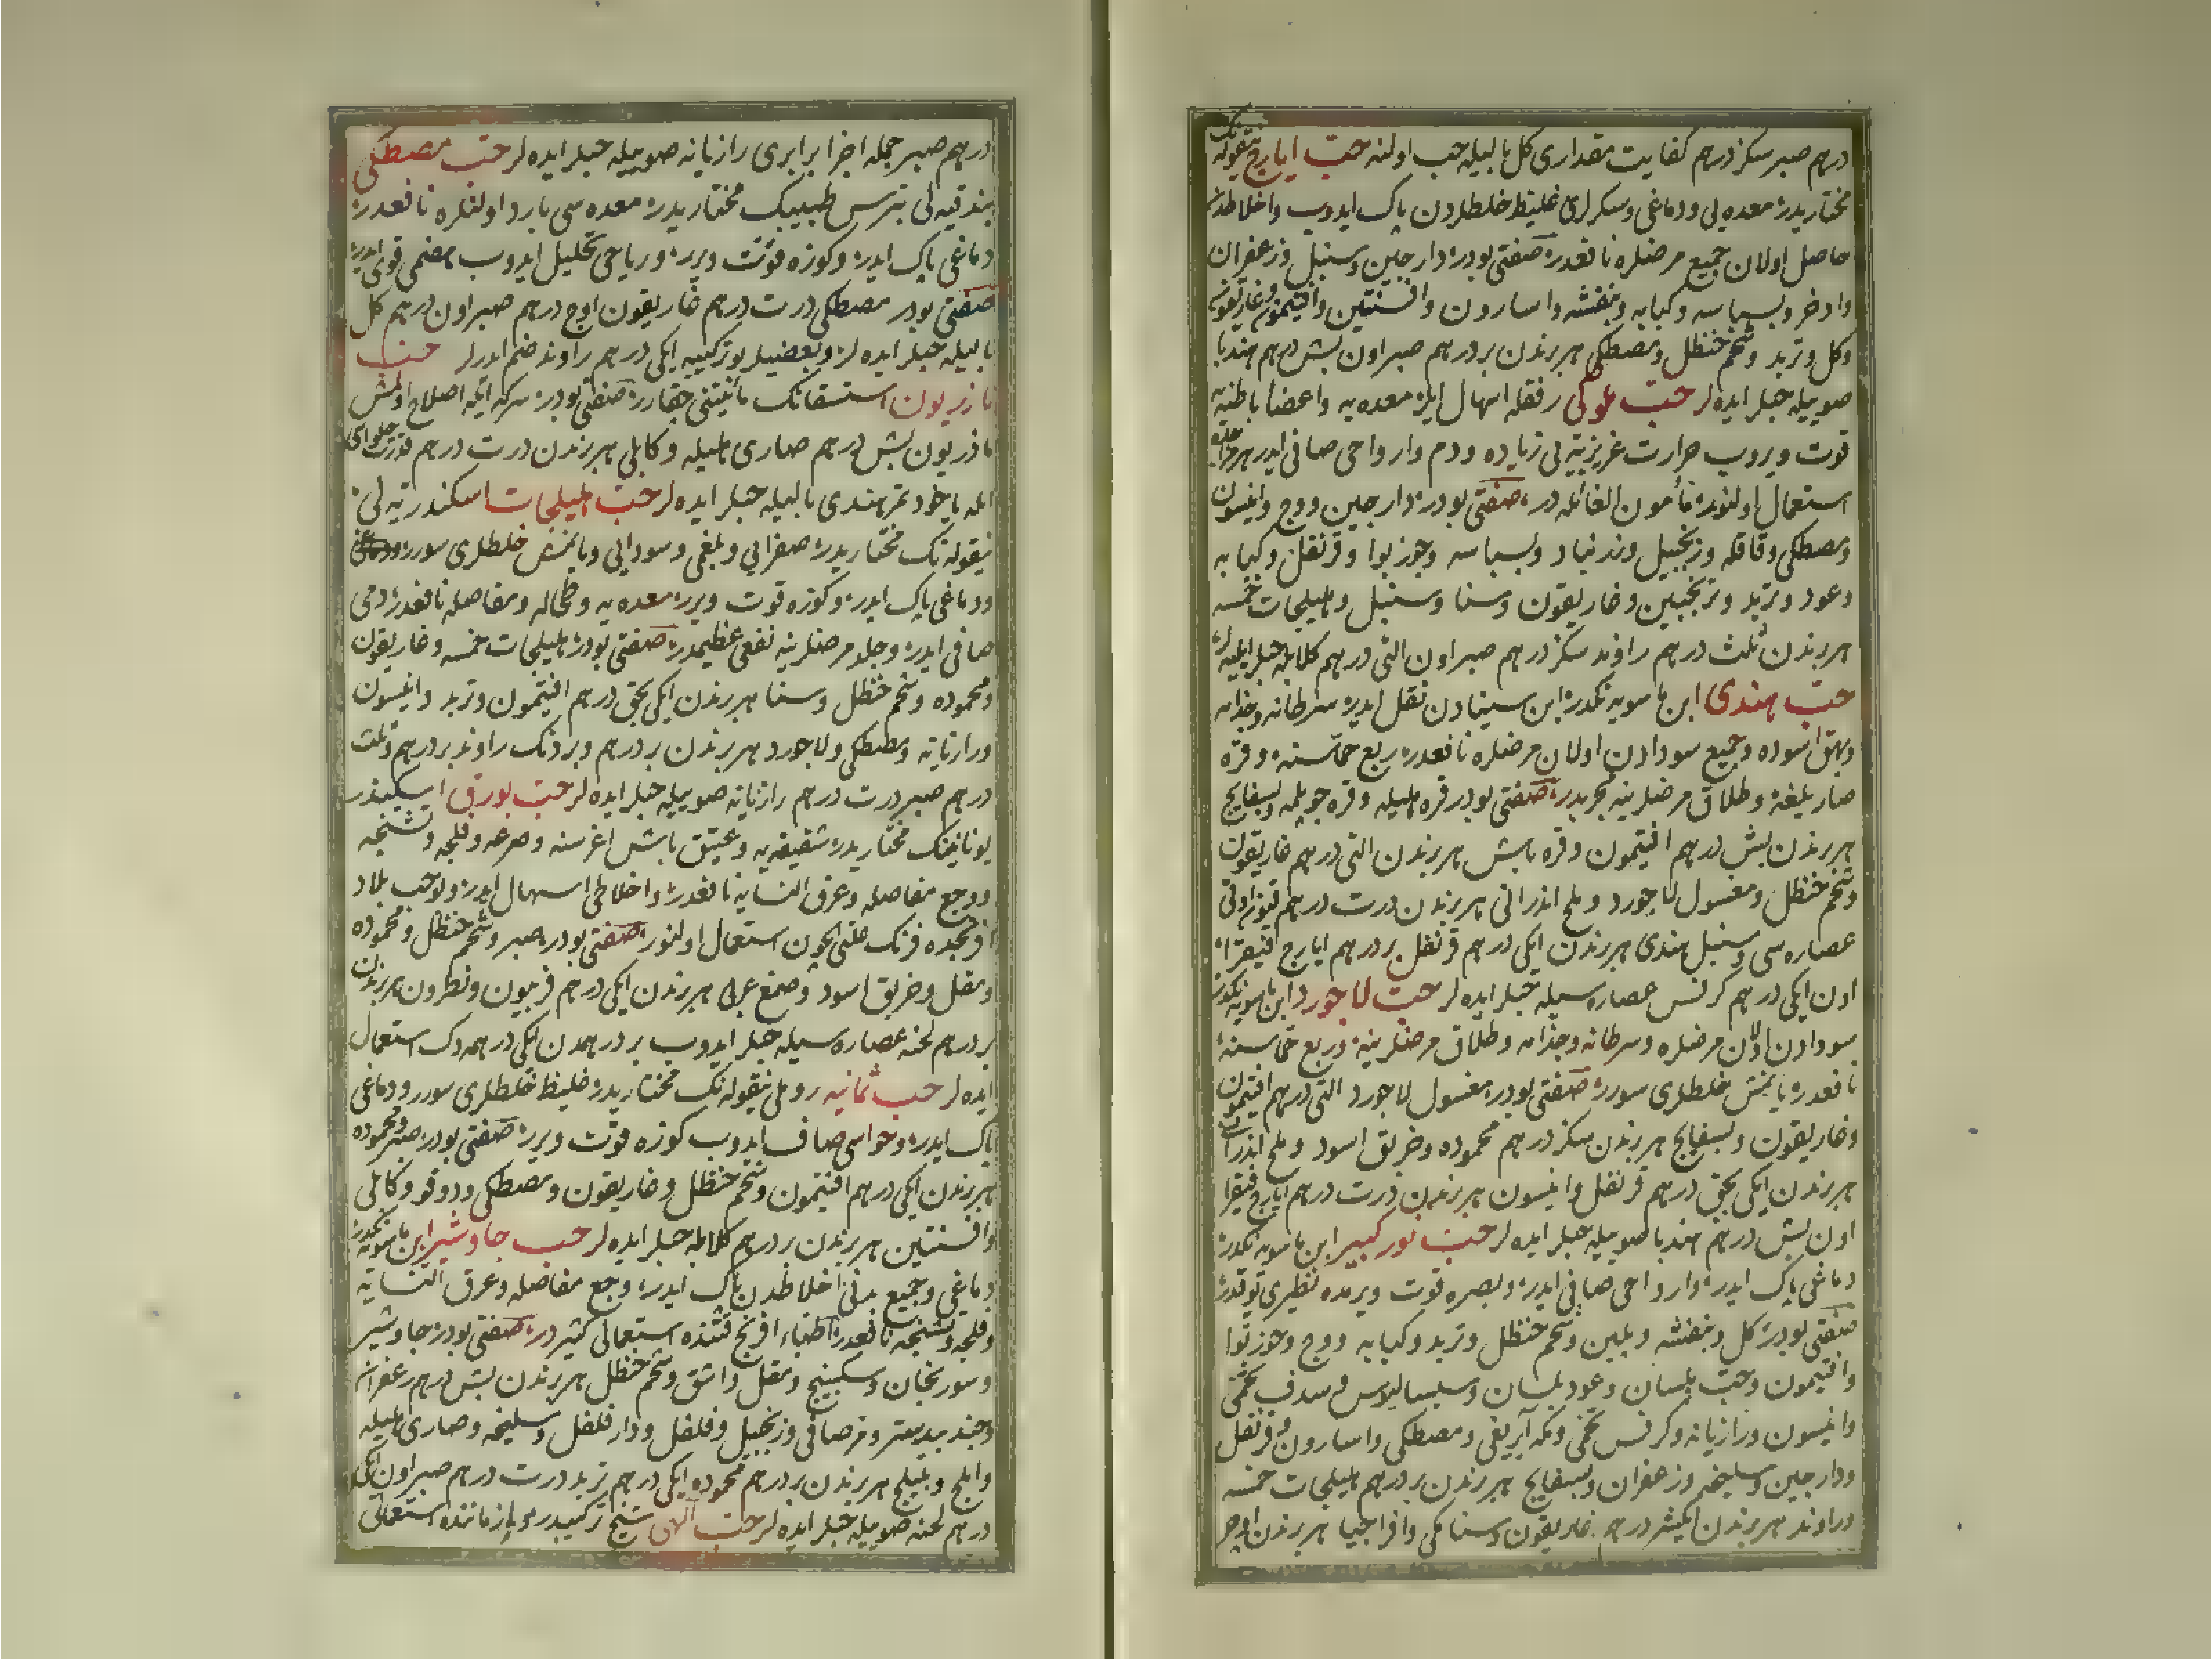 درهم صبر سكز درهم كفايت مقدارى كل باليله حب اولنه حبّ ايارج نيقوله نك
مختاريدر معده يى و دماغى و سكرلرى غليظ خلطلردن پاك ايدوب و اخلاطدن
حاصل اولان جميع مرضلره نافعدر صنعتى بودر دارچين و سنبل و زعفران
و اذخر و بسباسه و كبابه و بنفشه و اسارون و افسنتين و افتيمون و غاريقون
و كل و تربد و شحم حنظل و مصطكى هر برندن بر درهم صبر اون بش درهم هندبا
صوييله حبلر ايده لر حبّ ملوكى رفقله اسهال ايلر معده يه و اعضا باطنيه
قوت ويروب حرارت غريزيّه يى زياده و دم و ارواحى صافى ايدر هر مزاجه
استعمال اولنور مأمون الغائله در صنعتى بودر دارچين و وج و انيسون
و مصطكى و قاقله و زنجبيل و زرنباد و بسباسه و جوز بوا و قرنفل و كبابه
و عود و تربد و ترنجبين و غاريقون و سنا و سنبل و هليلجات خمسه
هر برندن ثلث درهم راوند سكز درهم صبر اون التى درهم كلابله حبلر ايليه لر
حبّ هندى ابن ماسويه نكدر ابن سينادن نقل ايدر سرطانه و جذامه
و بهق اسوده و جميع سودادن اولان مرضلره نافعدر ربع حمّاسنه و قره
صاريلغه و طلاق مرضلرينه مجربدر صنعتى بودر قره هليله و قره چوپلمه و بسفايج
هر برندن بش درهم افتيمون و قره باش هر برندن التى درهم غاريقون
و شحم حنظل و مغسول لاجورد و ملح اندرانى هر برندن درت درهم قيون اوتى
عصاره سى و سنبل هندى هر برندن ايكى درهم قرنفل بر درهم ايارج فيقرا
اون ايكى درهم كرفس عصاره سيله حبلر ايده لر حبّ لاجورد ابن ماسويه نكدر
سودادن اولان مرضلره و سرطانه و جذامه و طلاق مرضلرينه و ربع حمّاسنه
نافعدر يانمش خلطلرى سورر صنعتى بودر مغسول لاجورد التى درهم افتيمون
و غاريقون و بسفايج هر برندن سكز درهم محموده و خربق اسود و ملح اندرانى
هر برندن ايكى بچق درهم قرنفل و انيسون هر برندن درت درهم ايارج فيقرا
اون بش درهم هندبا صوييله حبلر ايده لر حبّ نور كبير ابن ماسويه نكدر
دماغى پاك ايدر و ارواحى صافى ايدر و بصره قوت ويرمده نظيرى يوقدر
صنعتى بودر كل و بنفشه و بلمين و شحم حنظل و تربد و كبابه و وج و جوز بوا
و افتيمون و حبّ بلسان و عود بلسان و سيساليوس و سدف تخمى
و انيسون و رازيانه و كرفس تخمى و مكه آيريغى و مصطكى و اسارون و قرنفل
و دارچين و سليخه و زعفران و بسفايج هر برندن بر درهم هليلجات خمسه
و راوند هر برندن ايكيشر درهم غاريقون و سنا مكى و افراجيا هر برندن اوچر
درهم صبر جمله اجزا برابرى رازيانه صوييله حبلر ايده لر حبّ مصطكى
بندقيه لى بترس طبيبك مختاريدر معده سى بارد اولنلره نافعدر
دماغى پاك ايدر و كوزه قوّت ويرر و رياحى تحليل ايدوب هضمى قوى ايدر
صنعتى بودر مصطكى درت درهم غاريقون اوچ درهم صبر اون درهم كل
باليله حبلر ايده لر و بعضيلر بو تركيبه ايكى درهم راوند ضم ايدرلر حبّ
مازريون استسقانك مائيتنى چقارر صنعتى بودر سركه ايله اصلاح اولمش
مازريون بش درهم صارى هليله و كابلى هر برندن درت درهم قدرت حلواسى
ايله ياخود تمر هندى باليله حبلر ايده لر حبّ هليلجات اسكندريه لى
نيقوله نك مختاريدر صفرايى و بلغمى و سودايى و يانمش خلطلرى سورر
و دماغى پاك ايدر و كوزه قوت ويرر معده يه و طحاله و مفاصله نافعدر دمى
صافى ايدر و جلد مرضلرينه نفعى عظيمدر صنعتى بودر هليلجات خمسه و غاريقون
و محموده و شحم حنظل و سنا هر برندن ايكى بچق درهم افتيمون و تربد و انيسون
و رازيانه و مصطكى و لاجورد هر برندن بر درهم و بر دنك راوند بر درهم و ثلث
درهم صبر درت درهم رازيانه صوييله حبلر ايده لر حبّ بورق اسكيندر
يونانينك مختاريدر شقيقه يه و عتيق باش اغرسنه و صرعه و فلجه و تشنجه
و وجع مفاصله و عرق النسايه نافعدر و اخلاطى اسهال ايدر و لوحب بلاد
افرنجده فرنك علتى ايچون استعمال اولنور صنعتى بودر صبر و شحم حنظل و محموده
و مقل و خربق اسود و صمغ عربى هر برندن ايكى درهم فربيون و نطرون هر برندن
بر درهم لحنه عصاره سيله حبلر ايدوب بر درهمدن ايكى درهمه دك استعمال
ايده لر حبّ ثمانيه روملى نيقوله نك مختاريدر غليظ خلطلرى سورر و دماغى
پاك ايدر و حواسى صاف ايدوب كوزه قوّت ويرر صنعتى بودر صبر و محموده
هر برندن ايكى درهم افتيمون و شحم حنظل و غاريقون و مصطكى و دوقو و كابلى
و افسنتين هر برندن بر درهم كلابله حبلر ايده لر حبّ جاوشير ابن ماسويه نكدر
دماغى و جميع بدنى اخلاطدن پاك ايدر وجع مفاصله و عرق النسايه
و فلجه و تشنجه نافعدر اطباء افرنج قتنده استعمالى كثيردر صنعتى بودر جاوشير
و سورنجان و سكبينج و مقل و اشق و شحم حنظل هر برندن بش درهم زعفران
و جند بيدستر و مر صافى و زنجبيل و فلفل و دار فلفل و سليخه و صارى هليله
و املج و بليلج هر برندن بر درهم محموده ايكى درهم تربد درت درهم صبر اون ايكى
درهم لحنه صوييله حبلر ايده لر حبّ آلهى شيخ تركيبيدر استعمالى